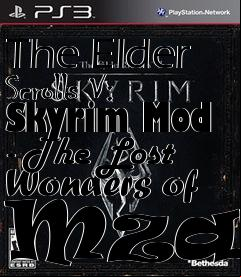 PS3 PlayStation Network
The Elder
Scrolls V:
SKYRIM
Skyrim Mod
- The Lost
Wonders of
Mza
ESRB
Bethesda